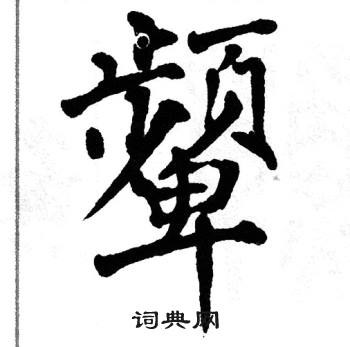 顰
词典网